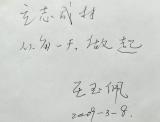 立志成材
从每一天做起
王玉佩
2009-3-8.